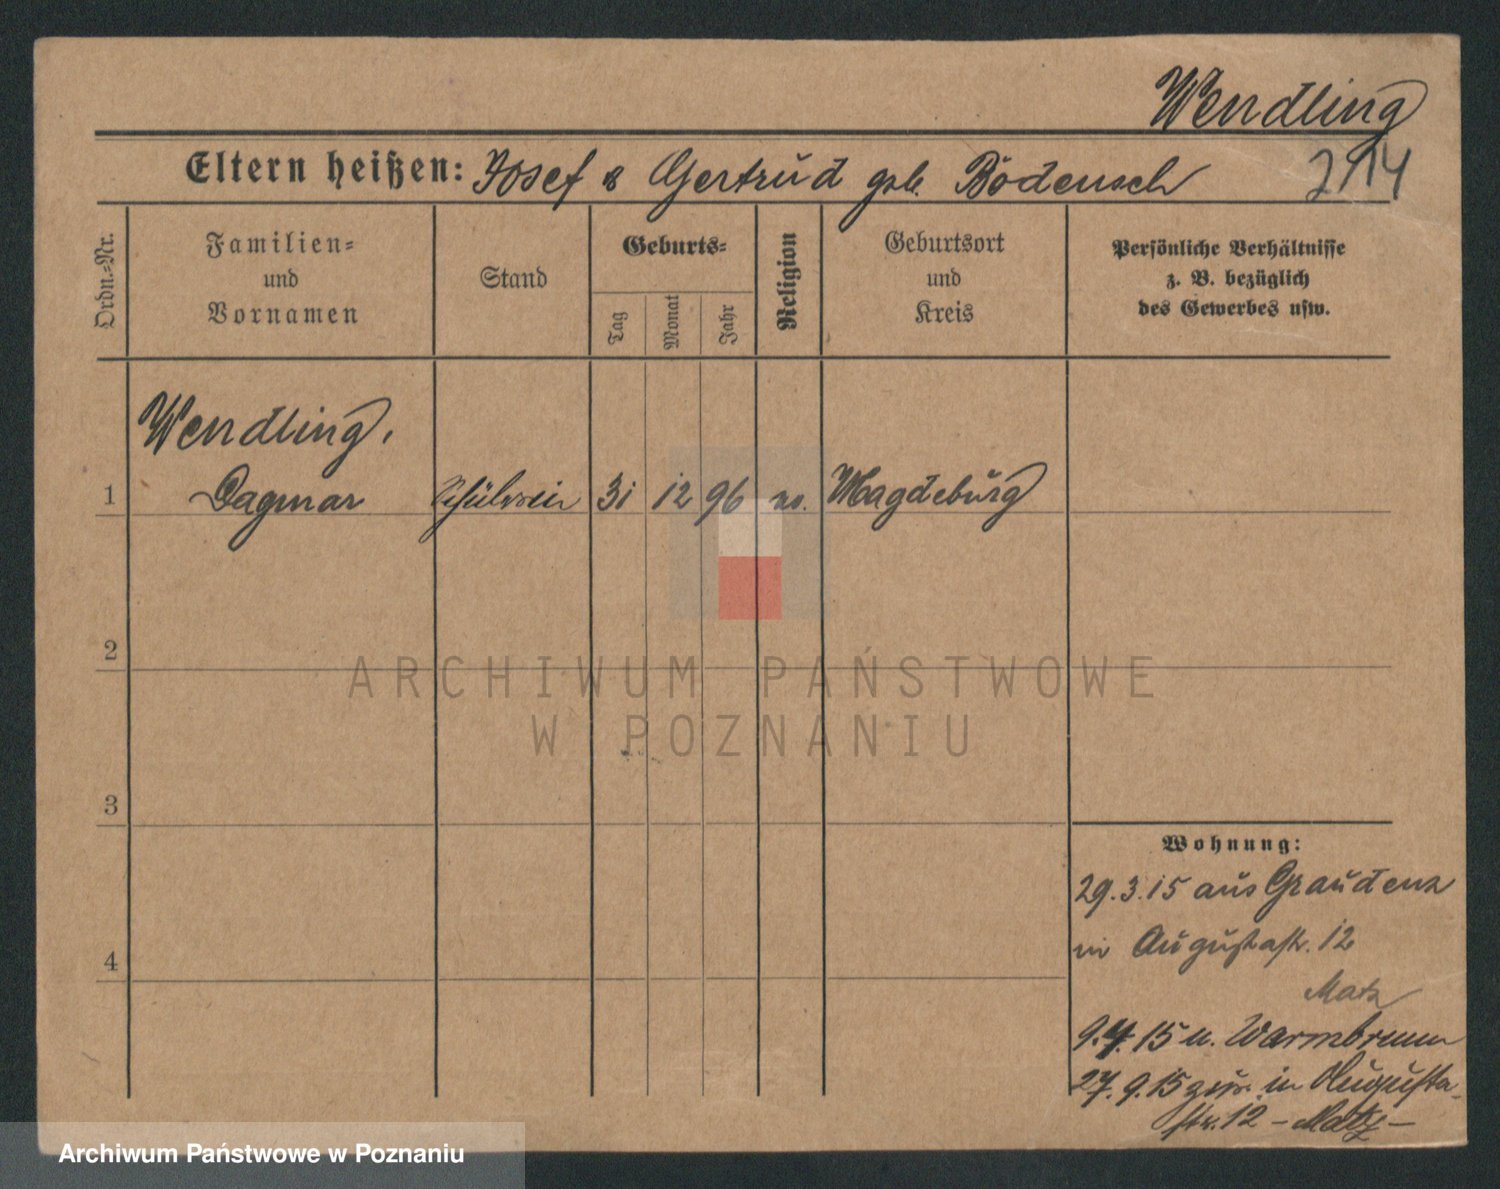 Wendling
Eltern heißen: Josef & Gertrud geb. Bodensch
Ordn.-Nr.
Familien-
und
Vornamen
Stand
Geburts-
Tag
Monat
Jahr
Religion
Geburtsort
und
Kreis
Persönliche Verhältnisse
z. B. bezüglich
des Gewerbes usw.
Wendling,
1 Dagmar Schülerin 31 12 96 Magdeburg
2
3
4
Wohnung:
29.3.15 aus Graudenz
in Augustastr. 12
Matz
9.4.15 n. Warmbrunn
27.9.15 zur. in Augusta-
str. 12 - Matz -
ARCHIWUM PAŃSTWOWE
W POZNANIU
Archiwum Państwowe w Poznaniu